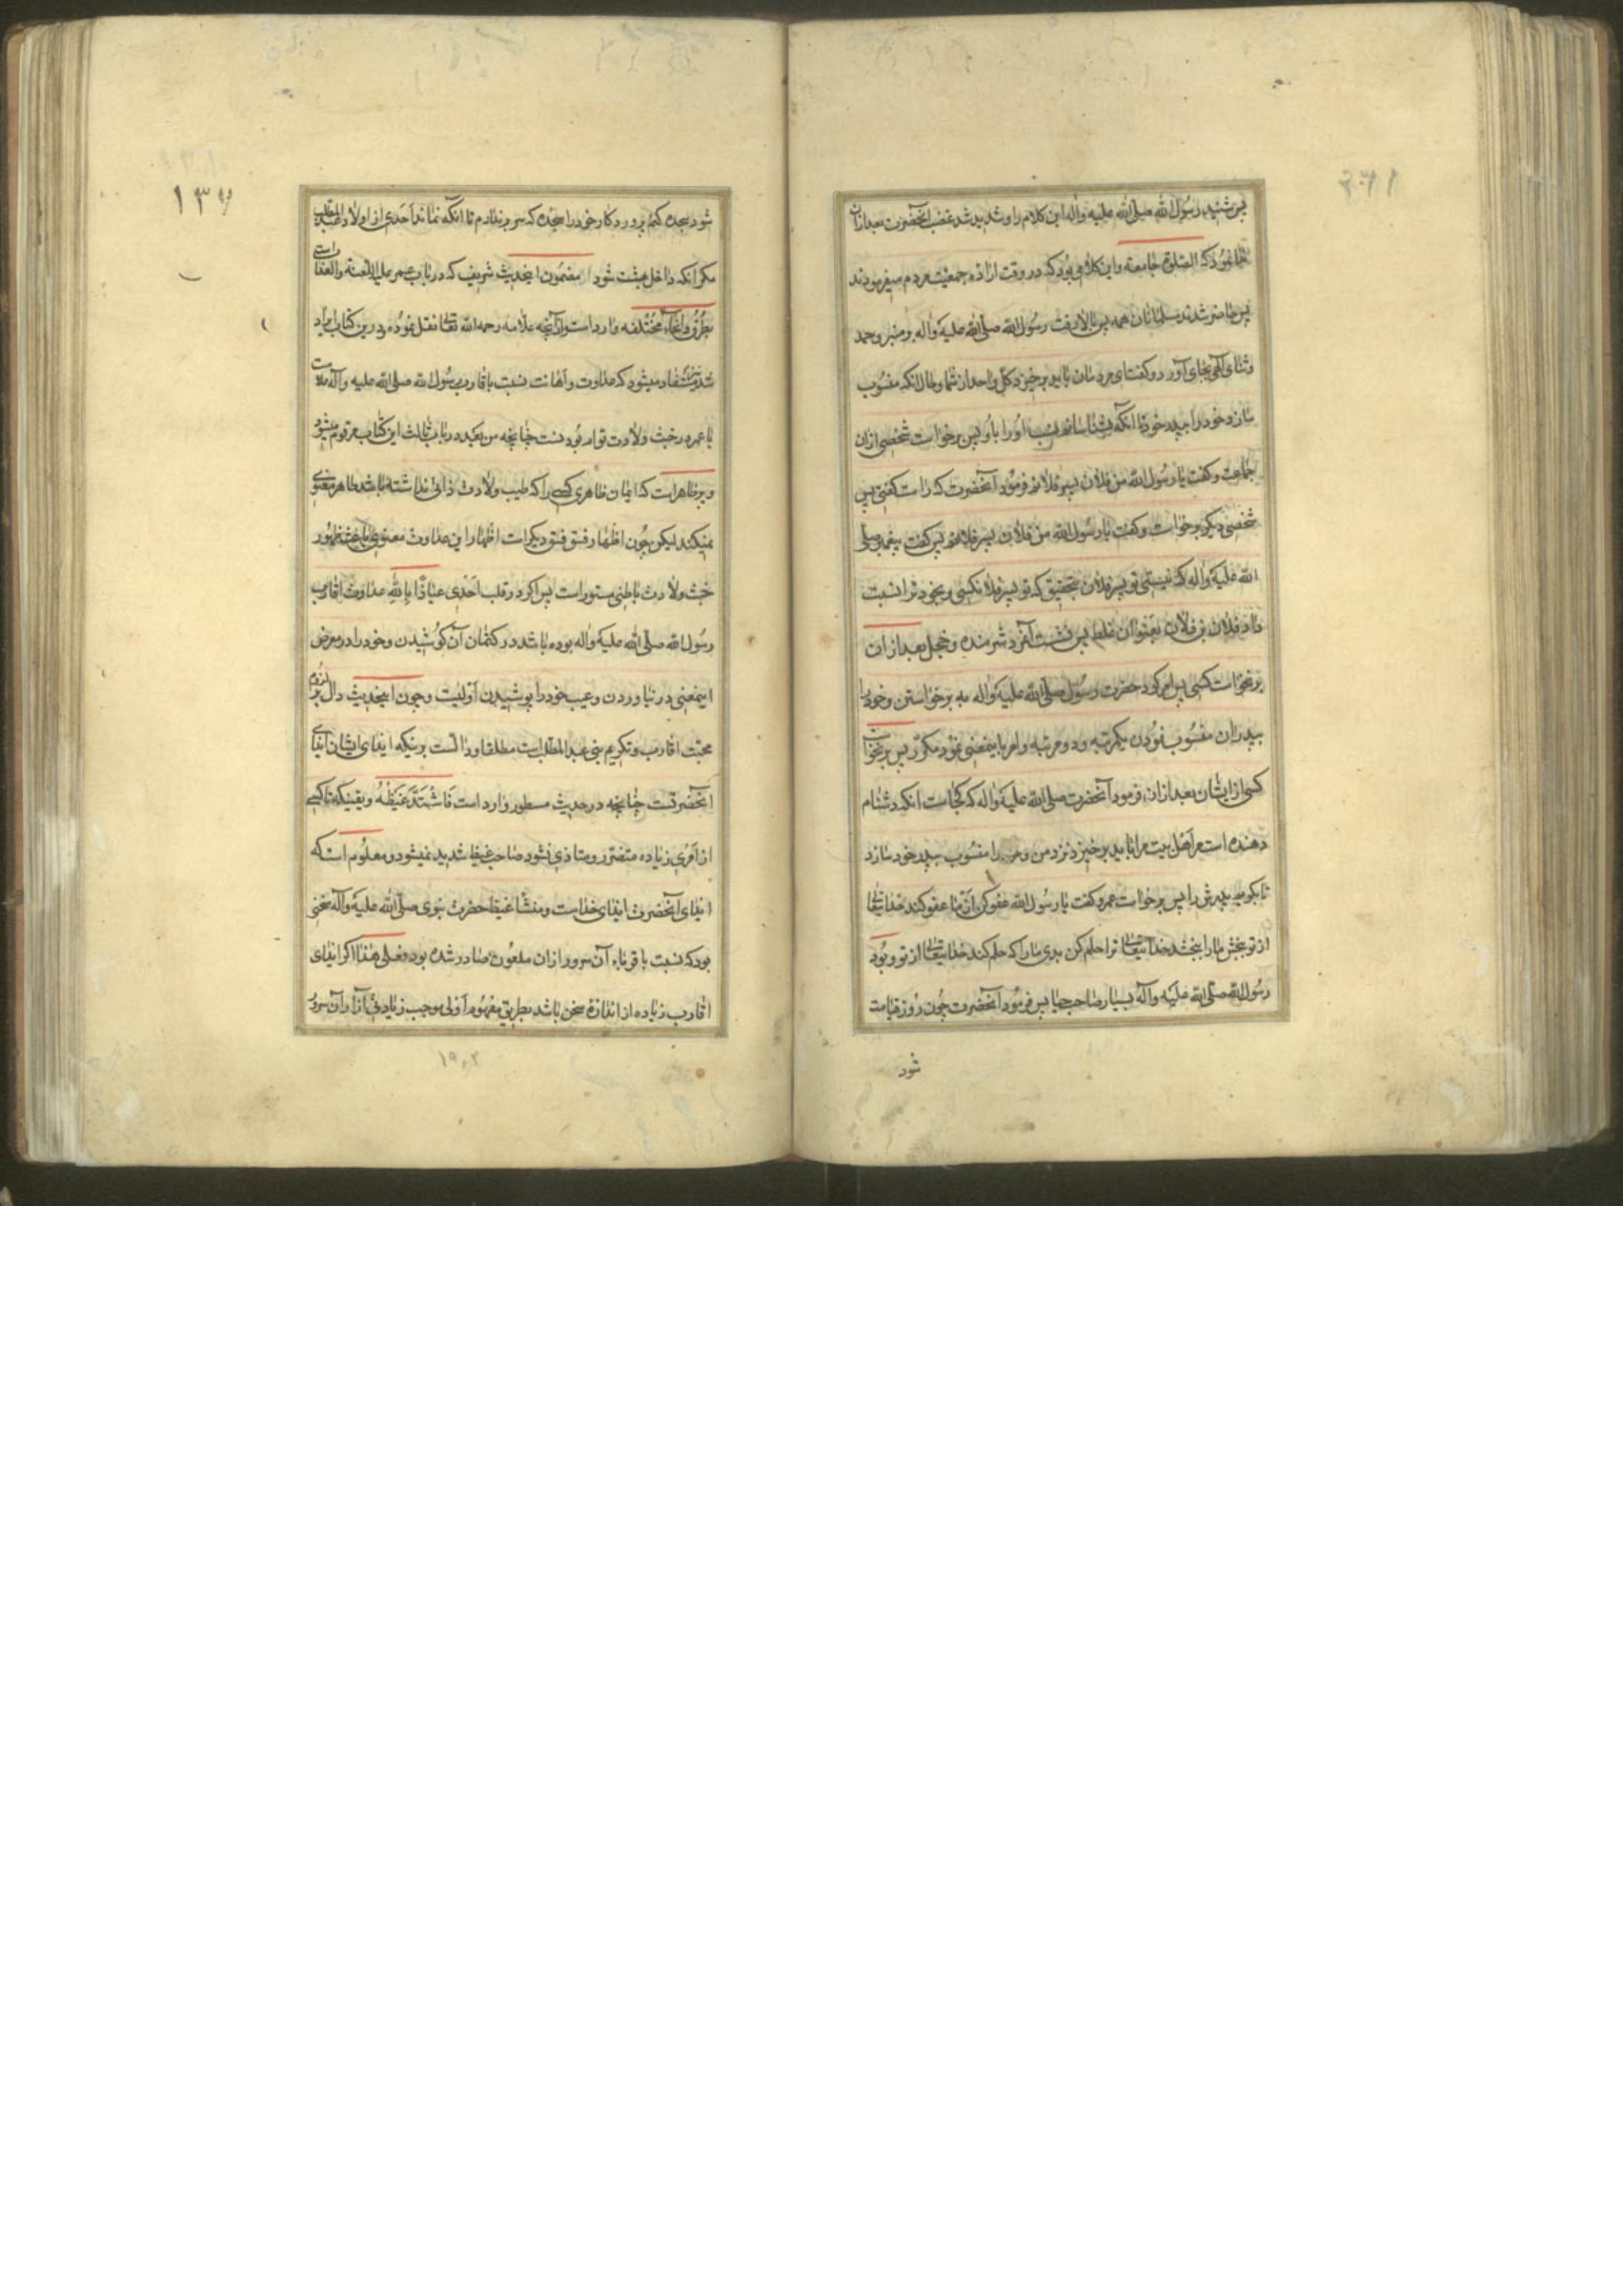 پس شنید رسول الله صلی الله علیه واله این کلام را و شدید شد غضب آنحضرت بعد ازان
نمود که الصلوة جامعة و این کلامی بود که در وقت اراده جمعیت مردم میفرمودند
پس حاضر شدند مسلمانان همه پس بالا رفت رسول الله صلی الله علیه واله بر منبر و حمد
و ثنای الهی بجای آورد و گفت ای مردمان باید برخیزد کل واحد از شما و حال انکه منسوب
سازد خود را بپدر خود تا انکه بشناسانم نسب او را باو پس برخواست شخصی ازان
جماعت و گفت یا رسول الله من فلان پسر فلانم فرمود آنحضرت که راست گفتی پس
شخصی دیگر برخواست و گفت یا رسول الله من فلان پسر فلانم پس گفت پیغمبر صلی
الله علیه واله که نیستی تو پسر فلان بتحقیق که تو پسر فلانکسی و بخود ترا نسبت
داد فلان بن فلان بعنوان غلط پس نشست آنمرد شرمنده و خجل بعد ازان
برنخواست کسی پس امر کرد حضرت رسول صلی الله علیه واله به برخواستن و خود را
بپدران منسوب نمودن یکمرتبه و دو مرتبه و امر باینمعنی نمود مکرر پس برنخواست
کسی از ایشان بعد ازان فرمود آنحضرت صلی الله علیه واله که کجاست انکه دشنام
دهنده است مر اهل بیت مرا باید برخیزد نزد من و را منسوب بپدر خود سازد
تا بگویم پدرش را پس برخواست عمر و گفت یا رسول الله عفو کن از ما عفو کند خدایتعالی
از تو ببخش ما را ببخشد خدایتعالی ترا حلم کن بدی ما را که حلم کند خدایتعالی از تو و بود
رسول الله صلی الله علیه وآله بسیار صاحب حیا پس فرمود آنحضرت چون روز قیامت
شود
١٣٦
شود سجده کنم پروردگار خود را سجده که سر برندارم تا انکه نماند احدی از اولاد عبد المطلب
مگر انکه داخل بهشت شود مضمون اینحدیث شریف که در باب عمر علیه اللعنة والعذاب است
بطرق و انحاء مختلفه وارد است و از آنچه علامه رحمه الله تعالی نقل نموده و درین کتاب ایراد
شد مستفاد میشود که عداوت و اهانت نسبت باقارب رسول الله صلی الله علیه وآله
با عمر و خبث ولادت توام بودنست چنانچه من بعد در باب ثالث این کتاب مرقوم میشود
و بر ظاهر است که ایمان ظاهری کسی را که طیب ولادت ذاتی نداشته باشد طاهر معنوی
نمیکند لیکن چون اظهار فسق فسق دیگر است اظهار این عداوت معنوی باعث ظهور
خبث ولادت باطنی مستور است پس اگر در قلب احدی عیاذا بالله عداوت اقارب
رسول الله صلی الله علیه واله بوده باشد در کتمان آن کوشیدن و خود را در معرض
اینمعنی در نیاوردن و عیب خود را پوشیدن اولیست و چون اینحدیث دال بر لزوم
محبت اقارب و تکریم بنی عبد المطلب است مطلقا و دالست برینکه ایذای ایشان ایذای
آنحضرتست چنانچه در حدیث مسطور وارد است فاشتد غیظه و یقینکه تا کسی
از امری زیاده متضرر و متاذی نشود صاحب غیظ شدید نمیشود و معلوم است که
ایذای آنحضرت ایذای خداست و منشا غیظ حضرت نبوی صلی الله علیه وآله سخنی
بود که نسبت باقرباء آن سرور ازان ملعون صادر شده بود فعلی هذا اگر ایذای
اقارب زیاده از اندازه سخن باشد بطریق مفهوم اولی موجب زیادتی آزار آن سرور
١٩٠٢